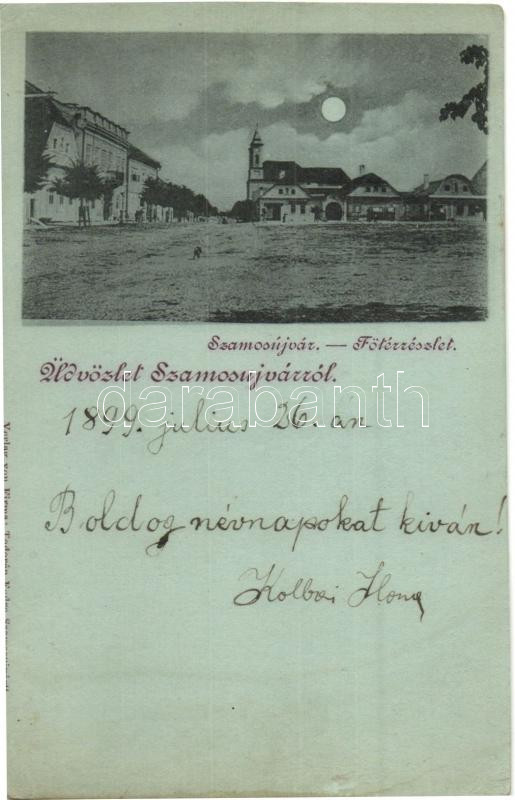 Szamosújvár. — Főtérrészlet.
Üdvözlet Szamosujvárról.
darabanth
1899. julius 26.-án
Boldog névnapokat kíván!
Kolbai Ilona
Verlag von